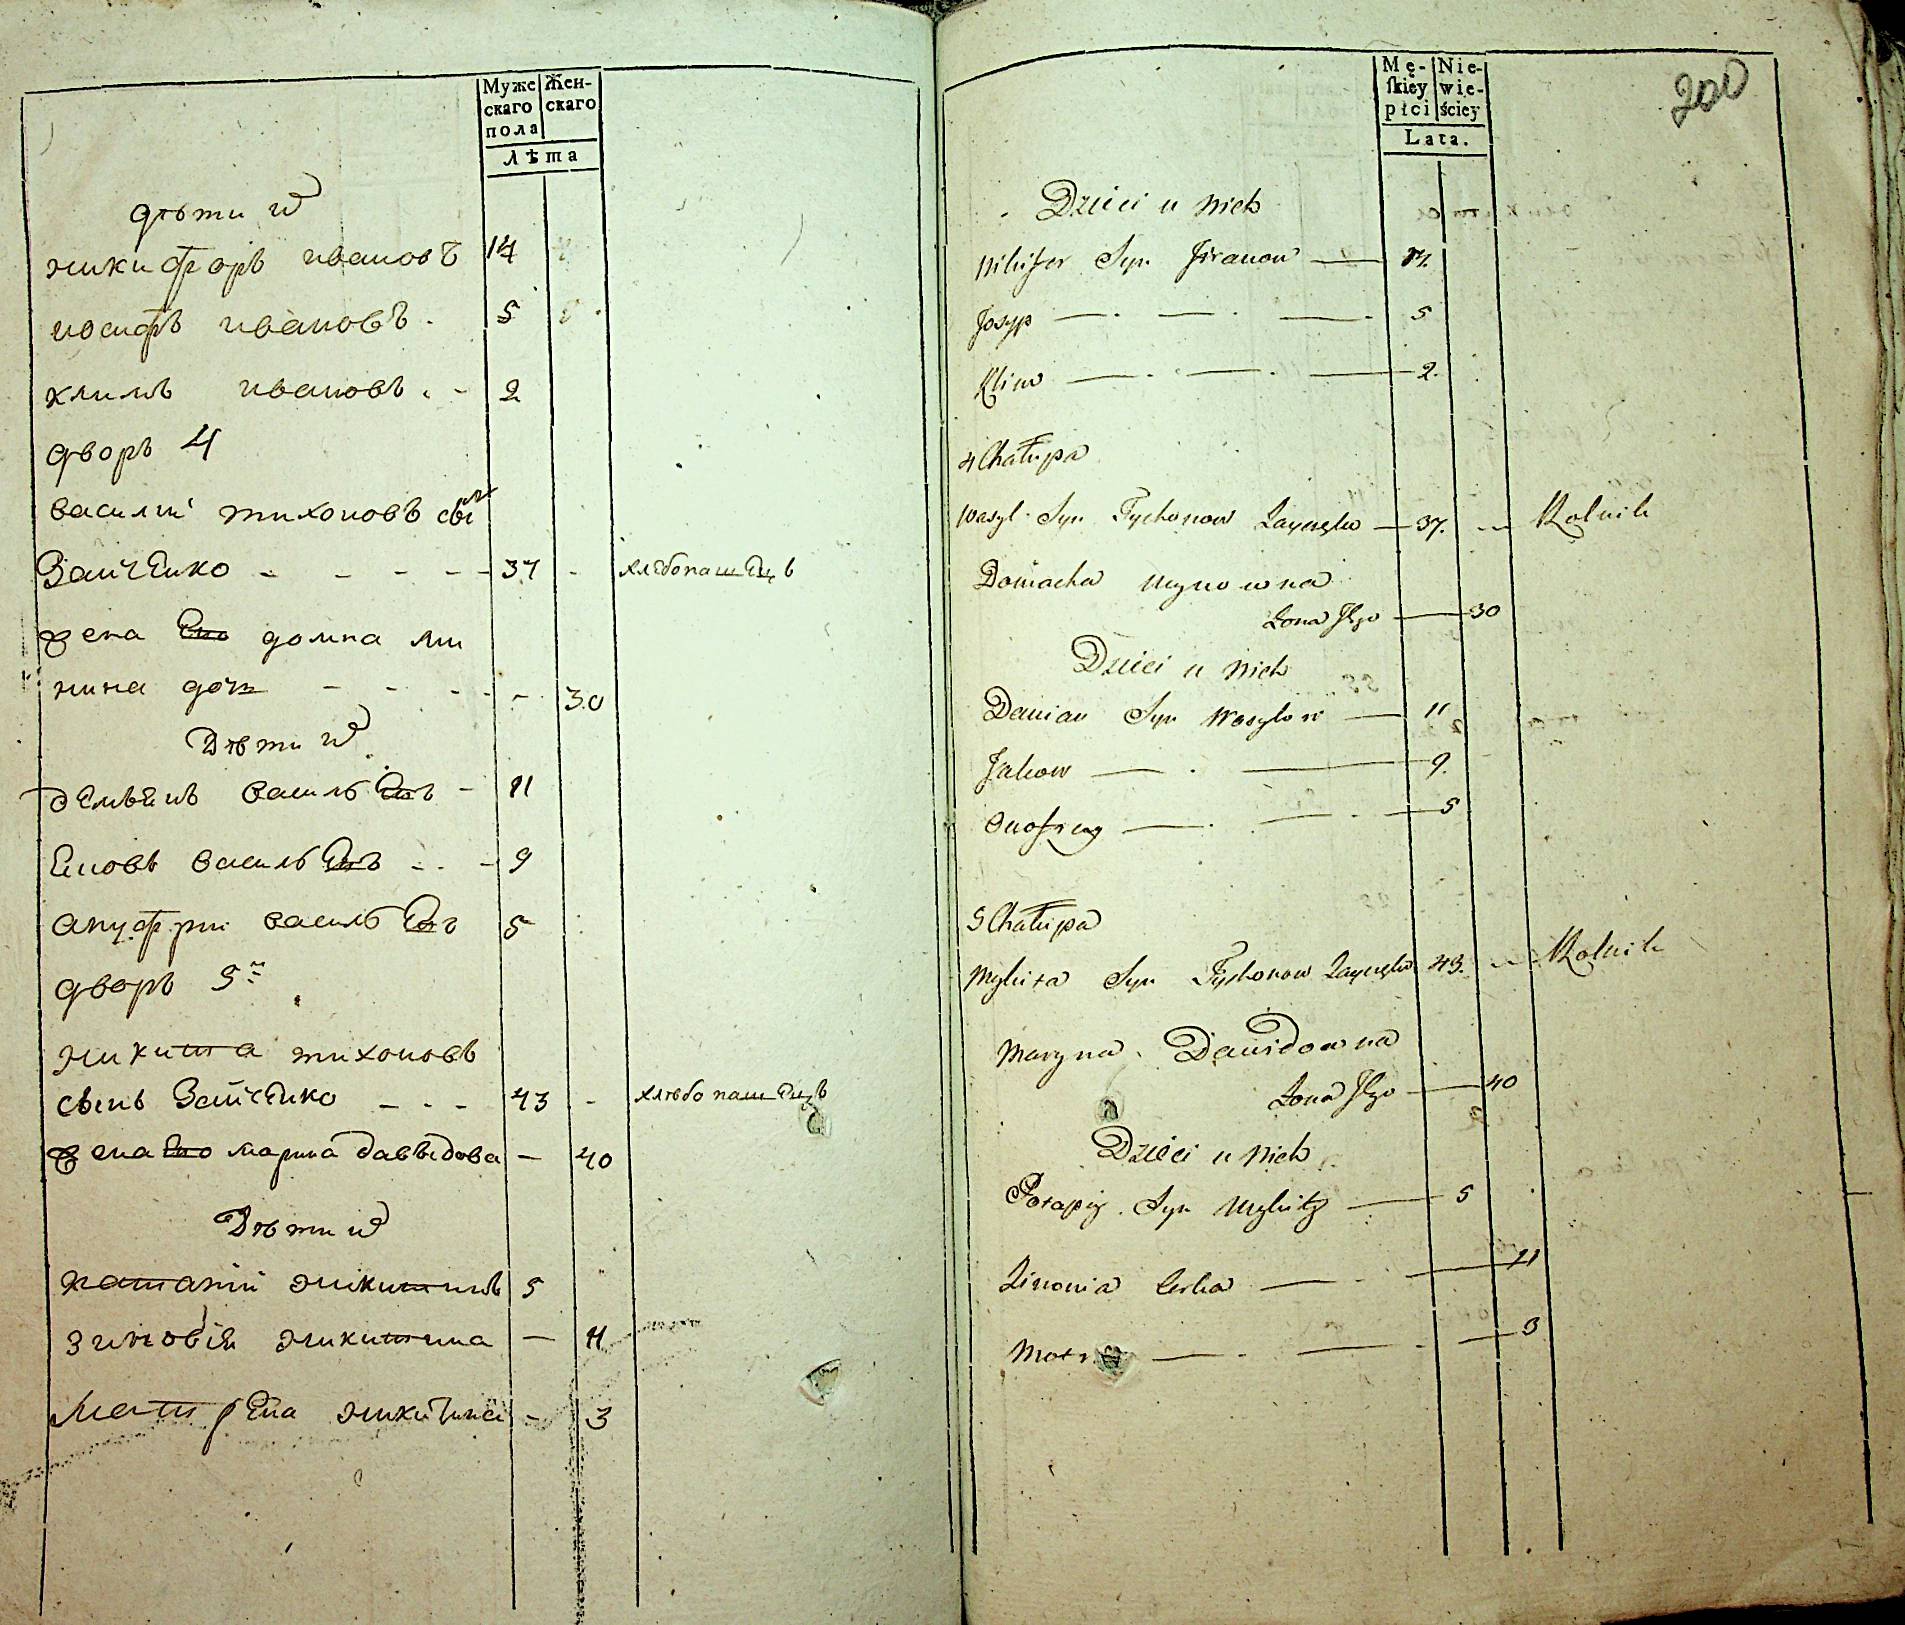 Муже
скаго
пола
Жен-
скаго
лѣта
дѣти их
никифоръ ивановъ 14
иосифъ ивановъ. 5
климъ ивановъ. - 2
дворъ 4
василий тихоновъ сынъ
Зайченко - - - - - 37 - хлѣбопашецъ
жена Его домна ми
нина дочь - - - - - 30
Дѣти их
демьянъ васильЕвъ - 11
Ековъ васильЕвъ - - - 9
ануфрий васильЕвъ 5
дворъ 5й
никита тихоновъ
сынъ Зайченко - - - 43 - хлѣбопашецъ
жена Его марина давыдова - 40
Дѣти их
патапий никитинъ 5
зиновия никитина - 11
МатрЕна никитина - 3
Mę-
skiey
płci
Nie-
wie-
ściey
Lata.
200
Dzieci u nich
Nikifor Syn Iwanow — 14.
Josyp — . — . — . 5
Klim — . — . — 2.
4 Chałupa
Wasyl Syn Tychonow Zayczęko — 37. -- Rolnik
Domacha Mynowna
Zona Jego — 30
Dzieci u nich
Damian Syn Wasylow — 11
Jakow — . — 9.
Onofrey — . — . — 5
5 Chałupa
Mykita Syn Tychonow Zayczęko 43. -- Rolnik
Maryna Dawidowna
Zona Jego — 40
Dzieci u nich
Potapiy Syn Mykity — 5
Zinowia Corka — . — 11
Motr — . — . — 3